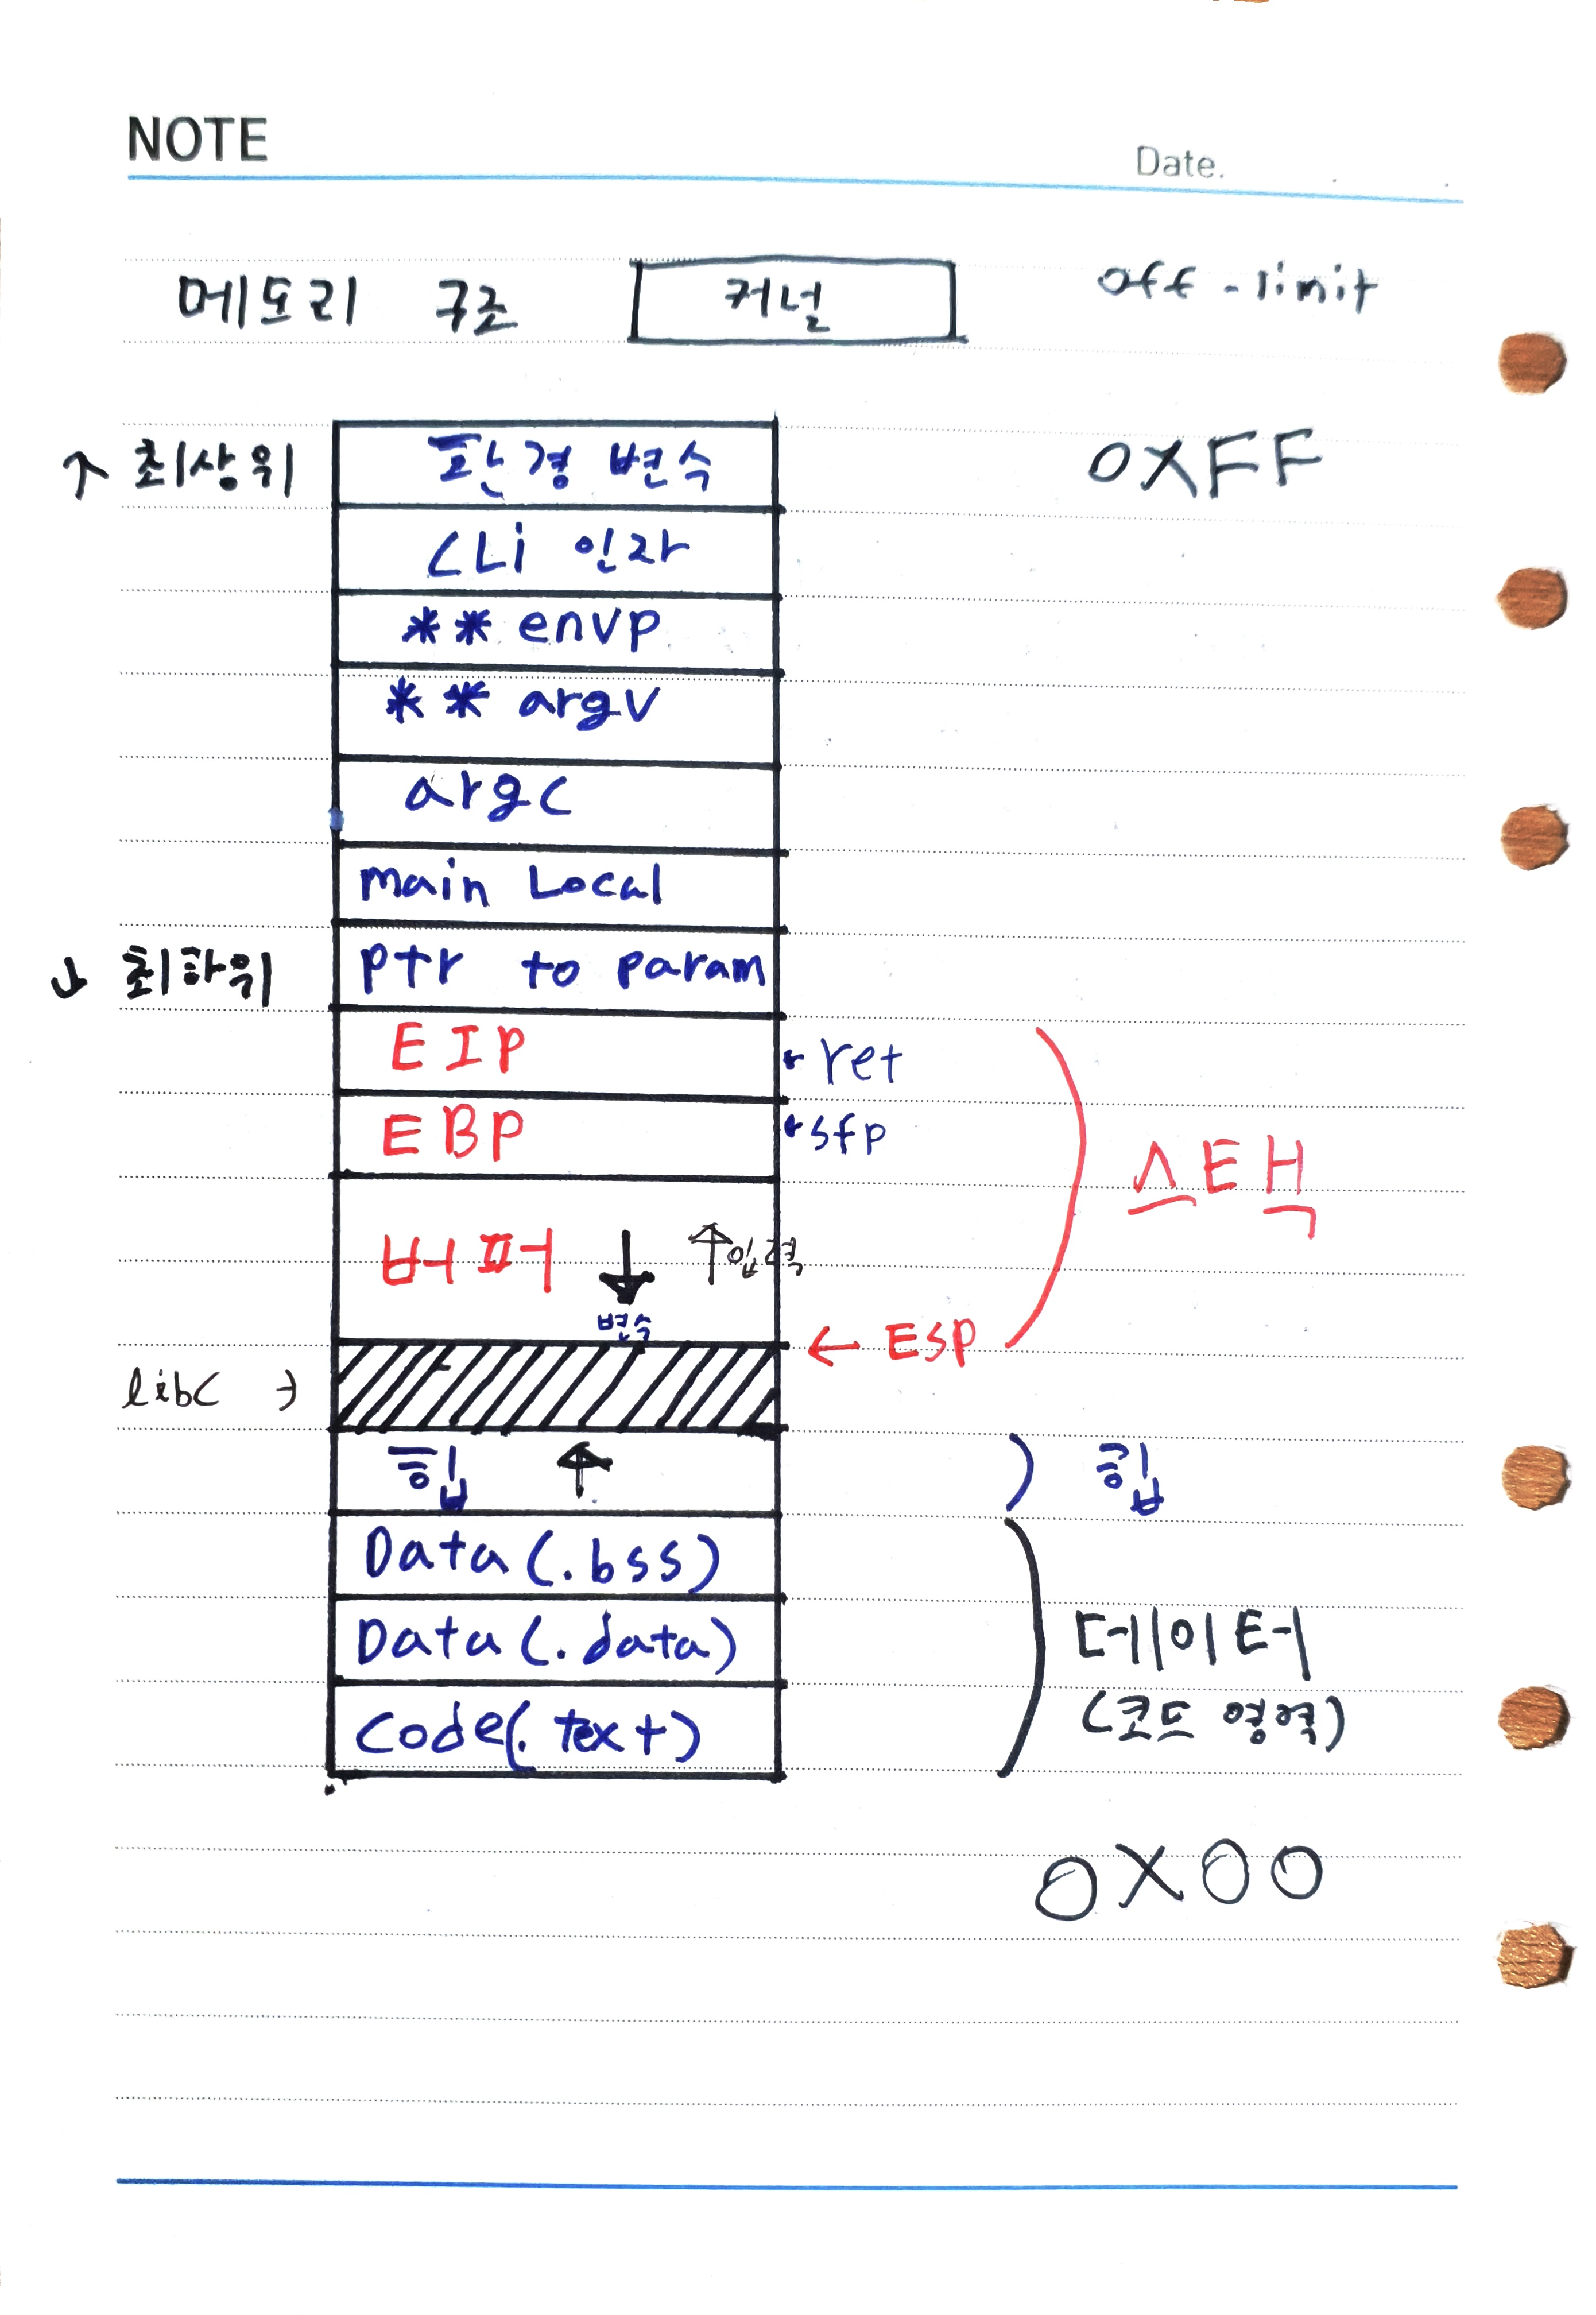 NOTE
Date.
메모리 구조 커널 off-limit
↑ 최상위 환경 변수 0XFF
CLi 인자
** envp
** argv
argc
main Local
↓ 최하위 ptr to param
EIP ← ret
EBP ← sfp
스택
버퍼 ↓ ↑입력
변수
← ESP
libc →
힙 ↑ 힙
Data(.bss)
Data(.data) 데이터
Code(.text) (코드 영역)
0X00